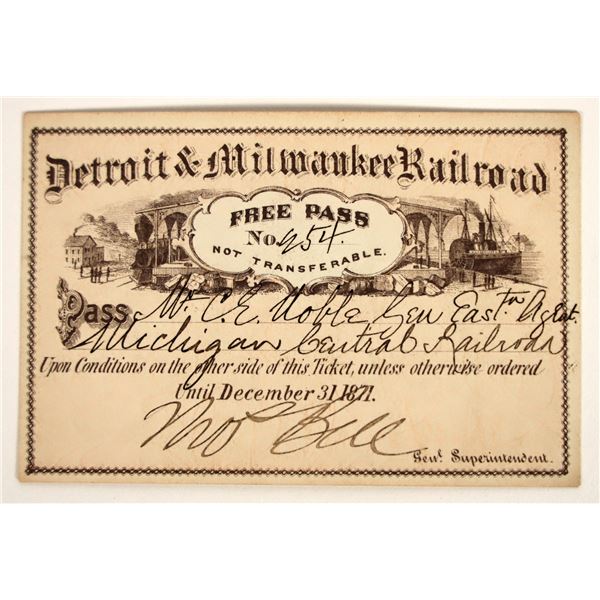 Detroit & Milwaukee Railroad
FREE PASS
No. 954.
NOT TRANSFERABLE.
Pass Mr. C. E. Noble Gen East'n Agent.
Michigan Central Railroad
Upon Conditions on the other side of this Ticket, unless otherwise ordered
Until December 31 1871.
Thos Bell
Genl. Superintendent.